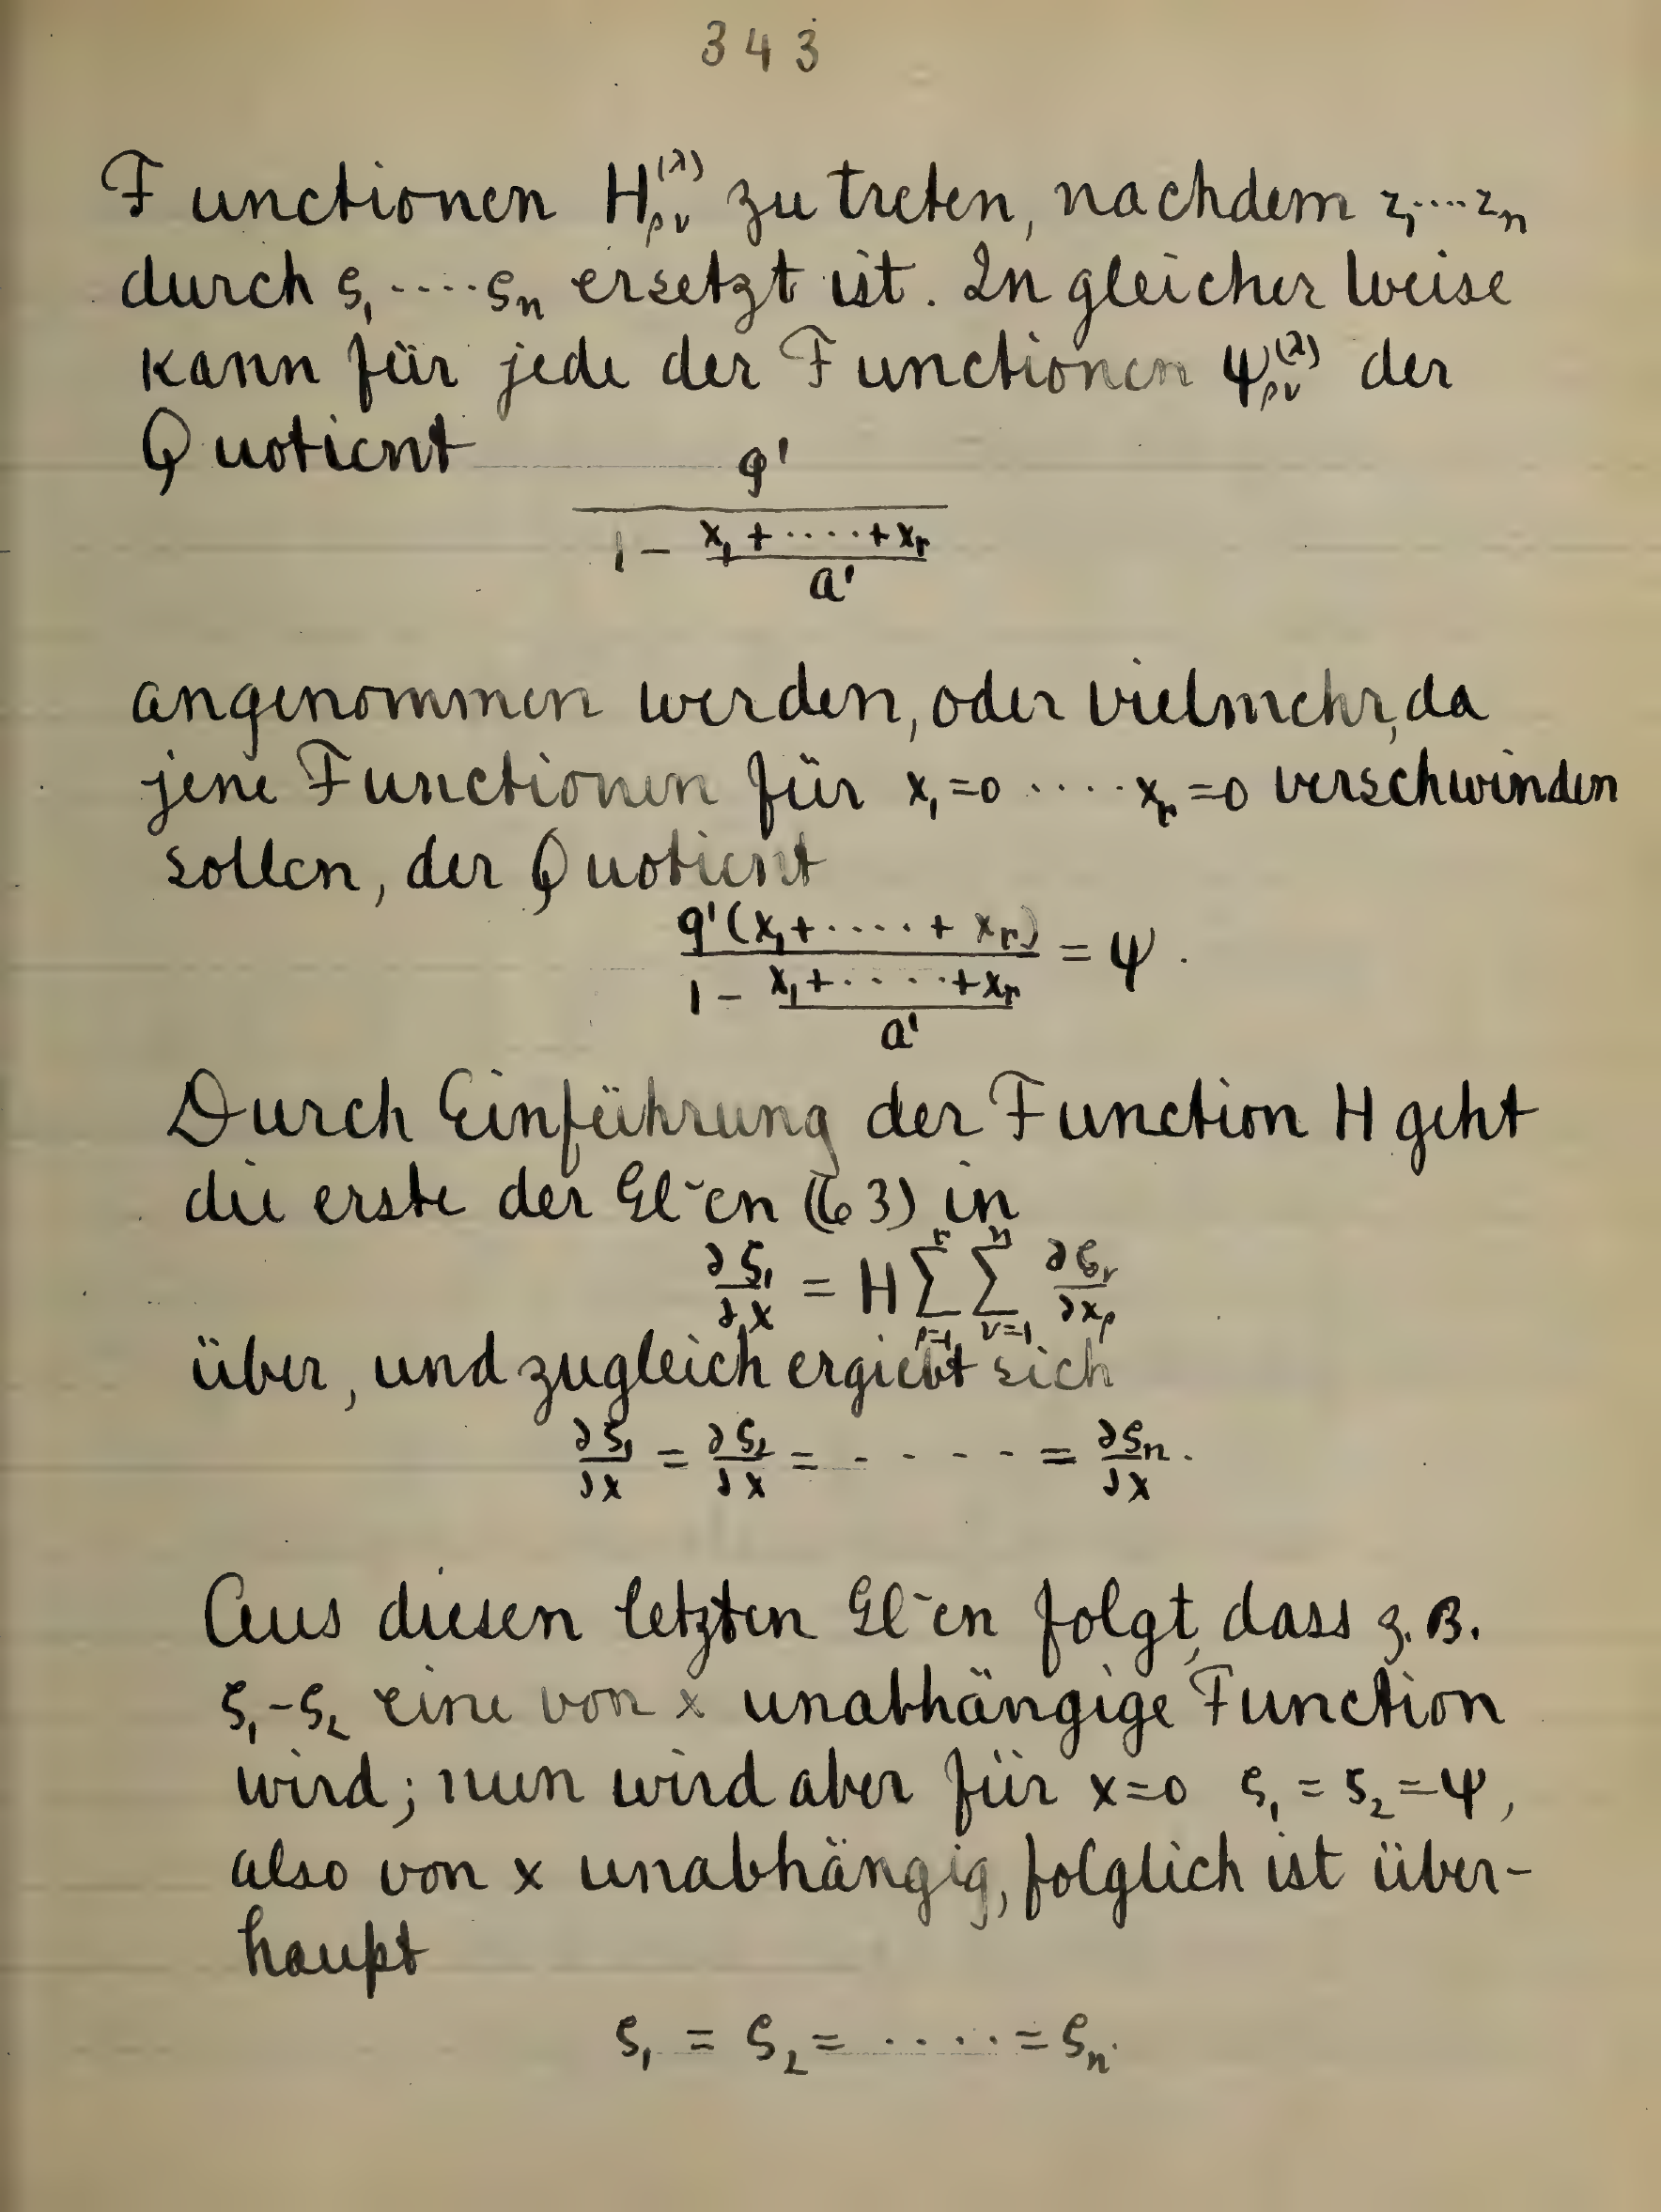 343
Functionen H_{ρν}^{(λ)} zu treten, nachdem z_1....z_n
durch ς_1 ..... ς_n ersetzt ist. In gleicher Weise
kann für jede der Functionen ψ_{ρν}^{(λ)} der
Quotient
g'
1 - (x_1 + ..... + x_r)/a'
angenommen werden, oder vielmehr, da
jene Functionen für x_1 = 0 ..... x_r = 0 verschwinden
sollen, der Quotient
g'(x_1 + ..... + x_r) = ψ.
1 - (x_1 + ..... + x_r)/a'
Durch Einführung der Function H geht
die erste der Gl~en (63) in
∂ς_1/∂x = H ∑_{ρ=1}^{r} ∑_{ν=1}^{n} ∂ς_ν/∂x_ρ
über, und zugleich ergiebt sich
∂ς_1/∂x = ∂ς_2/∂x = - - - - - = ∂ς_n/∂x.
Aus diesen letzten Gl~en folgt, dass z.B.
ς_1 - ς_2 eine von x unabhängige Function
wird; nun wird aber für x=0 ς_1 = ς_2 = ψ,
also von x unabhängig, folglich ist über-
haupt
ς_1 = ς_2 = ..... = ς_n.